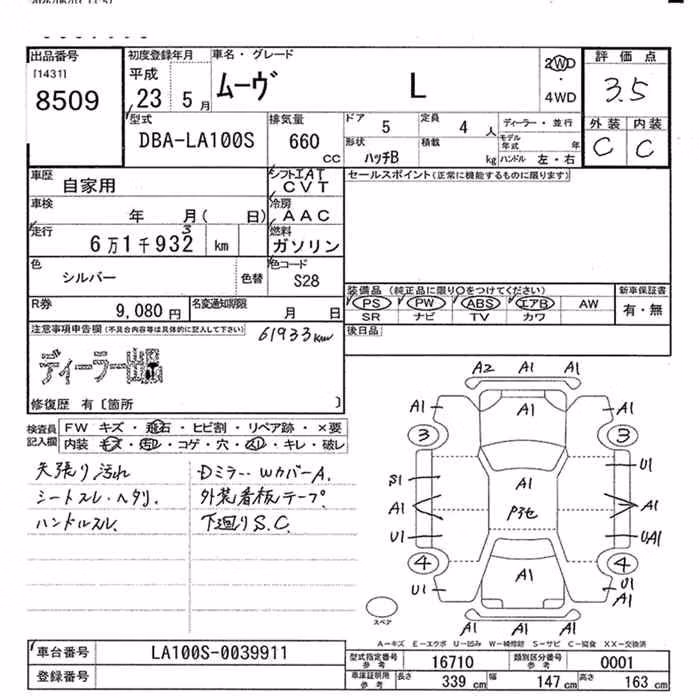 出品番号
[1431]
8509
初度登録年月
平成
23 5 月
車名・グレード
ムーヴ L
2WD
・
4WD
評価点
3.5
外装 内装
C C
型式
DBA-LA100S
排気量
660
CC
ドア
5
定員
4 人
形状
ハッチB
積載
kg
ディーラー・並行
モデル年式 年
ハンドル 左・右
車歴
自家用
シフト エAT
CVT
車検
年 月( 日)
冷房
AAC
走行
6万1千932 km
3
燃料
ガソリン
色
シルバー
色替
色コード
S28
R券
9,080 円
名変通知期限
月 日
セールスポイント(正常に機能するものに限ります)
装備品(純正品に限り○をつけてください)
PS PW ABS エアB AW
SR ナビ TV カワ
新車保証書
有・無
後日品
注意事項申告欄(不具合内容等は具体的に記入して下さい)
61933km
ディーラー出品
修復歴 有〔箇所 〕
検査員記入欄
FW キズ・飛石・ヒビ割・リペア跡・×要
内装・キズ・汚れ・コゲ・穴・スレ・キレ・破レ
天張り汚れ
シートスレ・ヘタリ.
ハンドルスレ
Dミラー・WカバーA.
外装看板テープ
下廻りS.C.
A2 A1 A1
A1 A1 A1
3 3
U1
S1 A1
A1 Pタセ A1
U1 UA1
4 4
U1 A1 U1
A1
A1
スペア
A-キズ E-エクボ U-凹み W-補修跡 S-サビ C-腐食 XX-交換済
車台番号
LA100S-0039911
登録番号
型式指定番号
参考
16710
類別区分番号
参考
0001
車庫証明用
参考
長さ 339 cm 幅 147 cm 高さ 163 cm